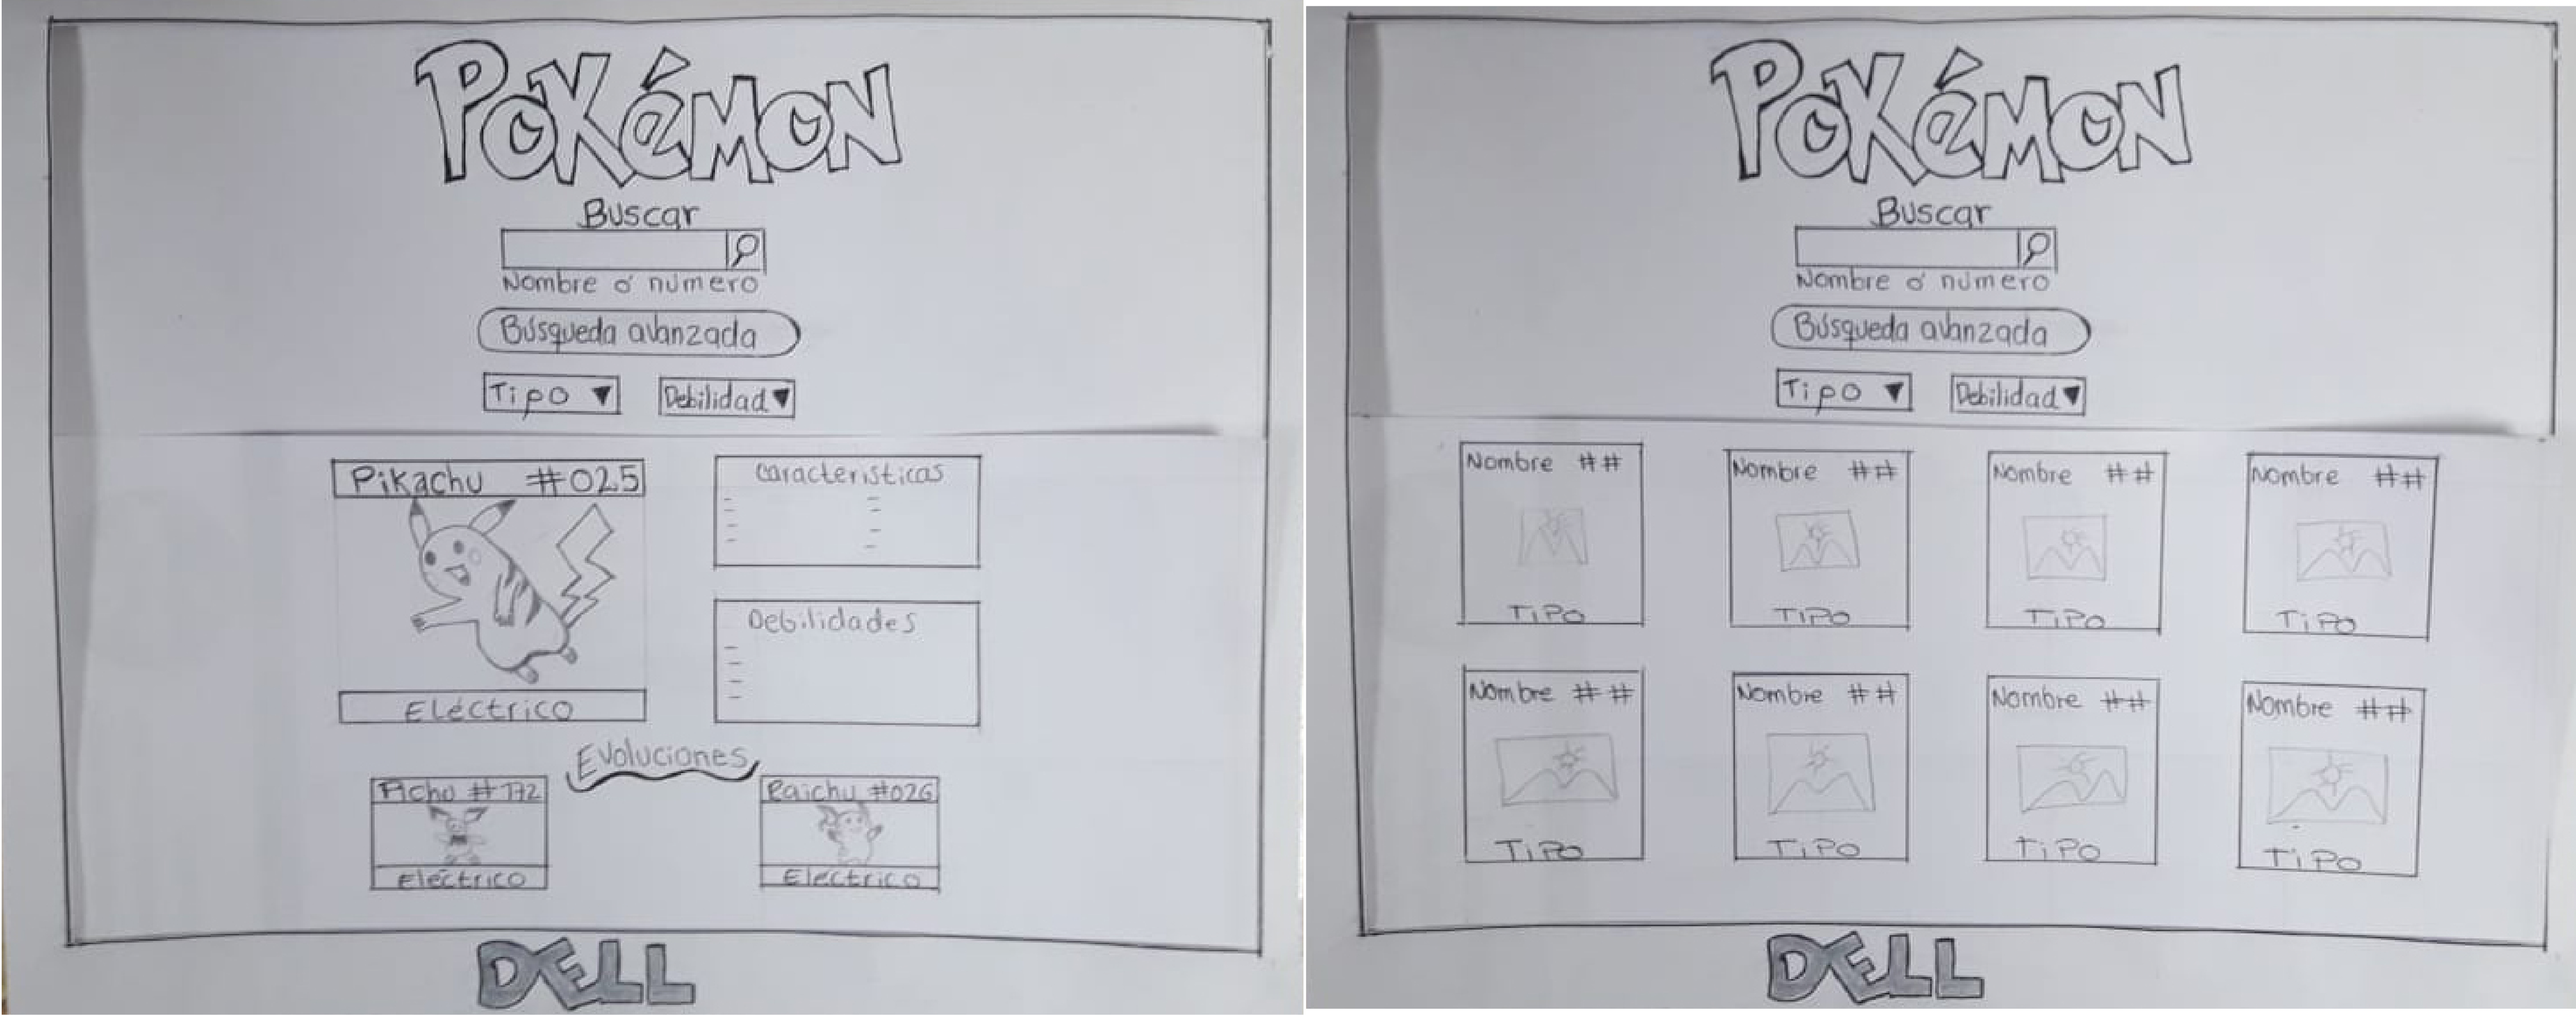 POKéMON
Buscar
Nombre ó número
Búsqueda avanzada
Tipo ▼ Debilidad ▼
Pikachu #025
Eléctrico
Caracteristicas
Debilidades
Evoluciones
Pichu #172
Eléctrico
Raichu #026
Electrico
DELL
POKéMON
Buscar
Nombre ó número
Búsqueda avanzada
Tipo ▼ Debilidad ▼
Nombre ## Nombre ## Nombre ## Nombre ##
TiPo TiPo TiPo TiPo
Nombre ## Nombre ## Nombre ## Nombre ##
TiPo TiPo TiPo TiPo
DELL